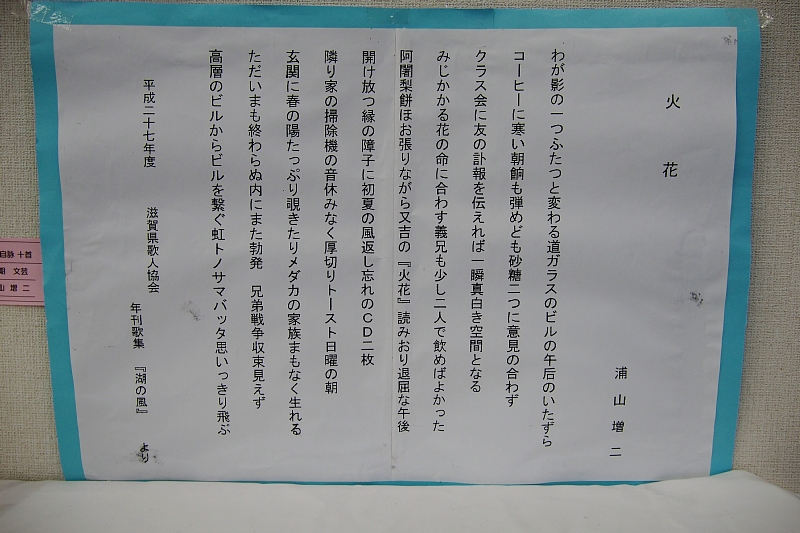 火花
浦山増二
わが影の一つふたつと変わる道ガラスのビルの午后のいたずら
コーヒーに寒い朝餉も弾めども砂糖二つに意見の合わず
クラス会に友の訃報を伝えれば一瞬真白き空間となる
みじかかる花の命に合わす義兄も少し二人で飲めばよかった
阿闍梨餅ほお張りながら又吉の『火花』読みおり退屈な午後
開け放つ縁の障子に初夏の風返し忘れのCD二枚
隣り家の掃除機の音休みなく厚切りトースト日曜の朝
玄関に春の陽たっぷり覗きたりメダカの家族まもなく生れる
ただいまも終わらぬ内にまた勃発　兄弟戦争収束見えず
高層のビルからビルを繋ぐ虹トノサマバッタ思いっきり飛ぶ
平成二十七年度　滋賀県歌人協会
年刊歌集　『湖の風』　より
自詠 十首
文芸
山 増 二